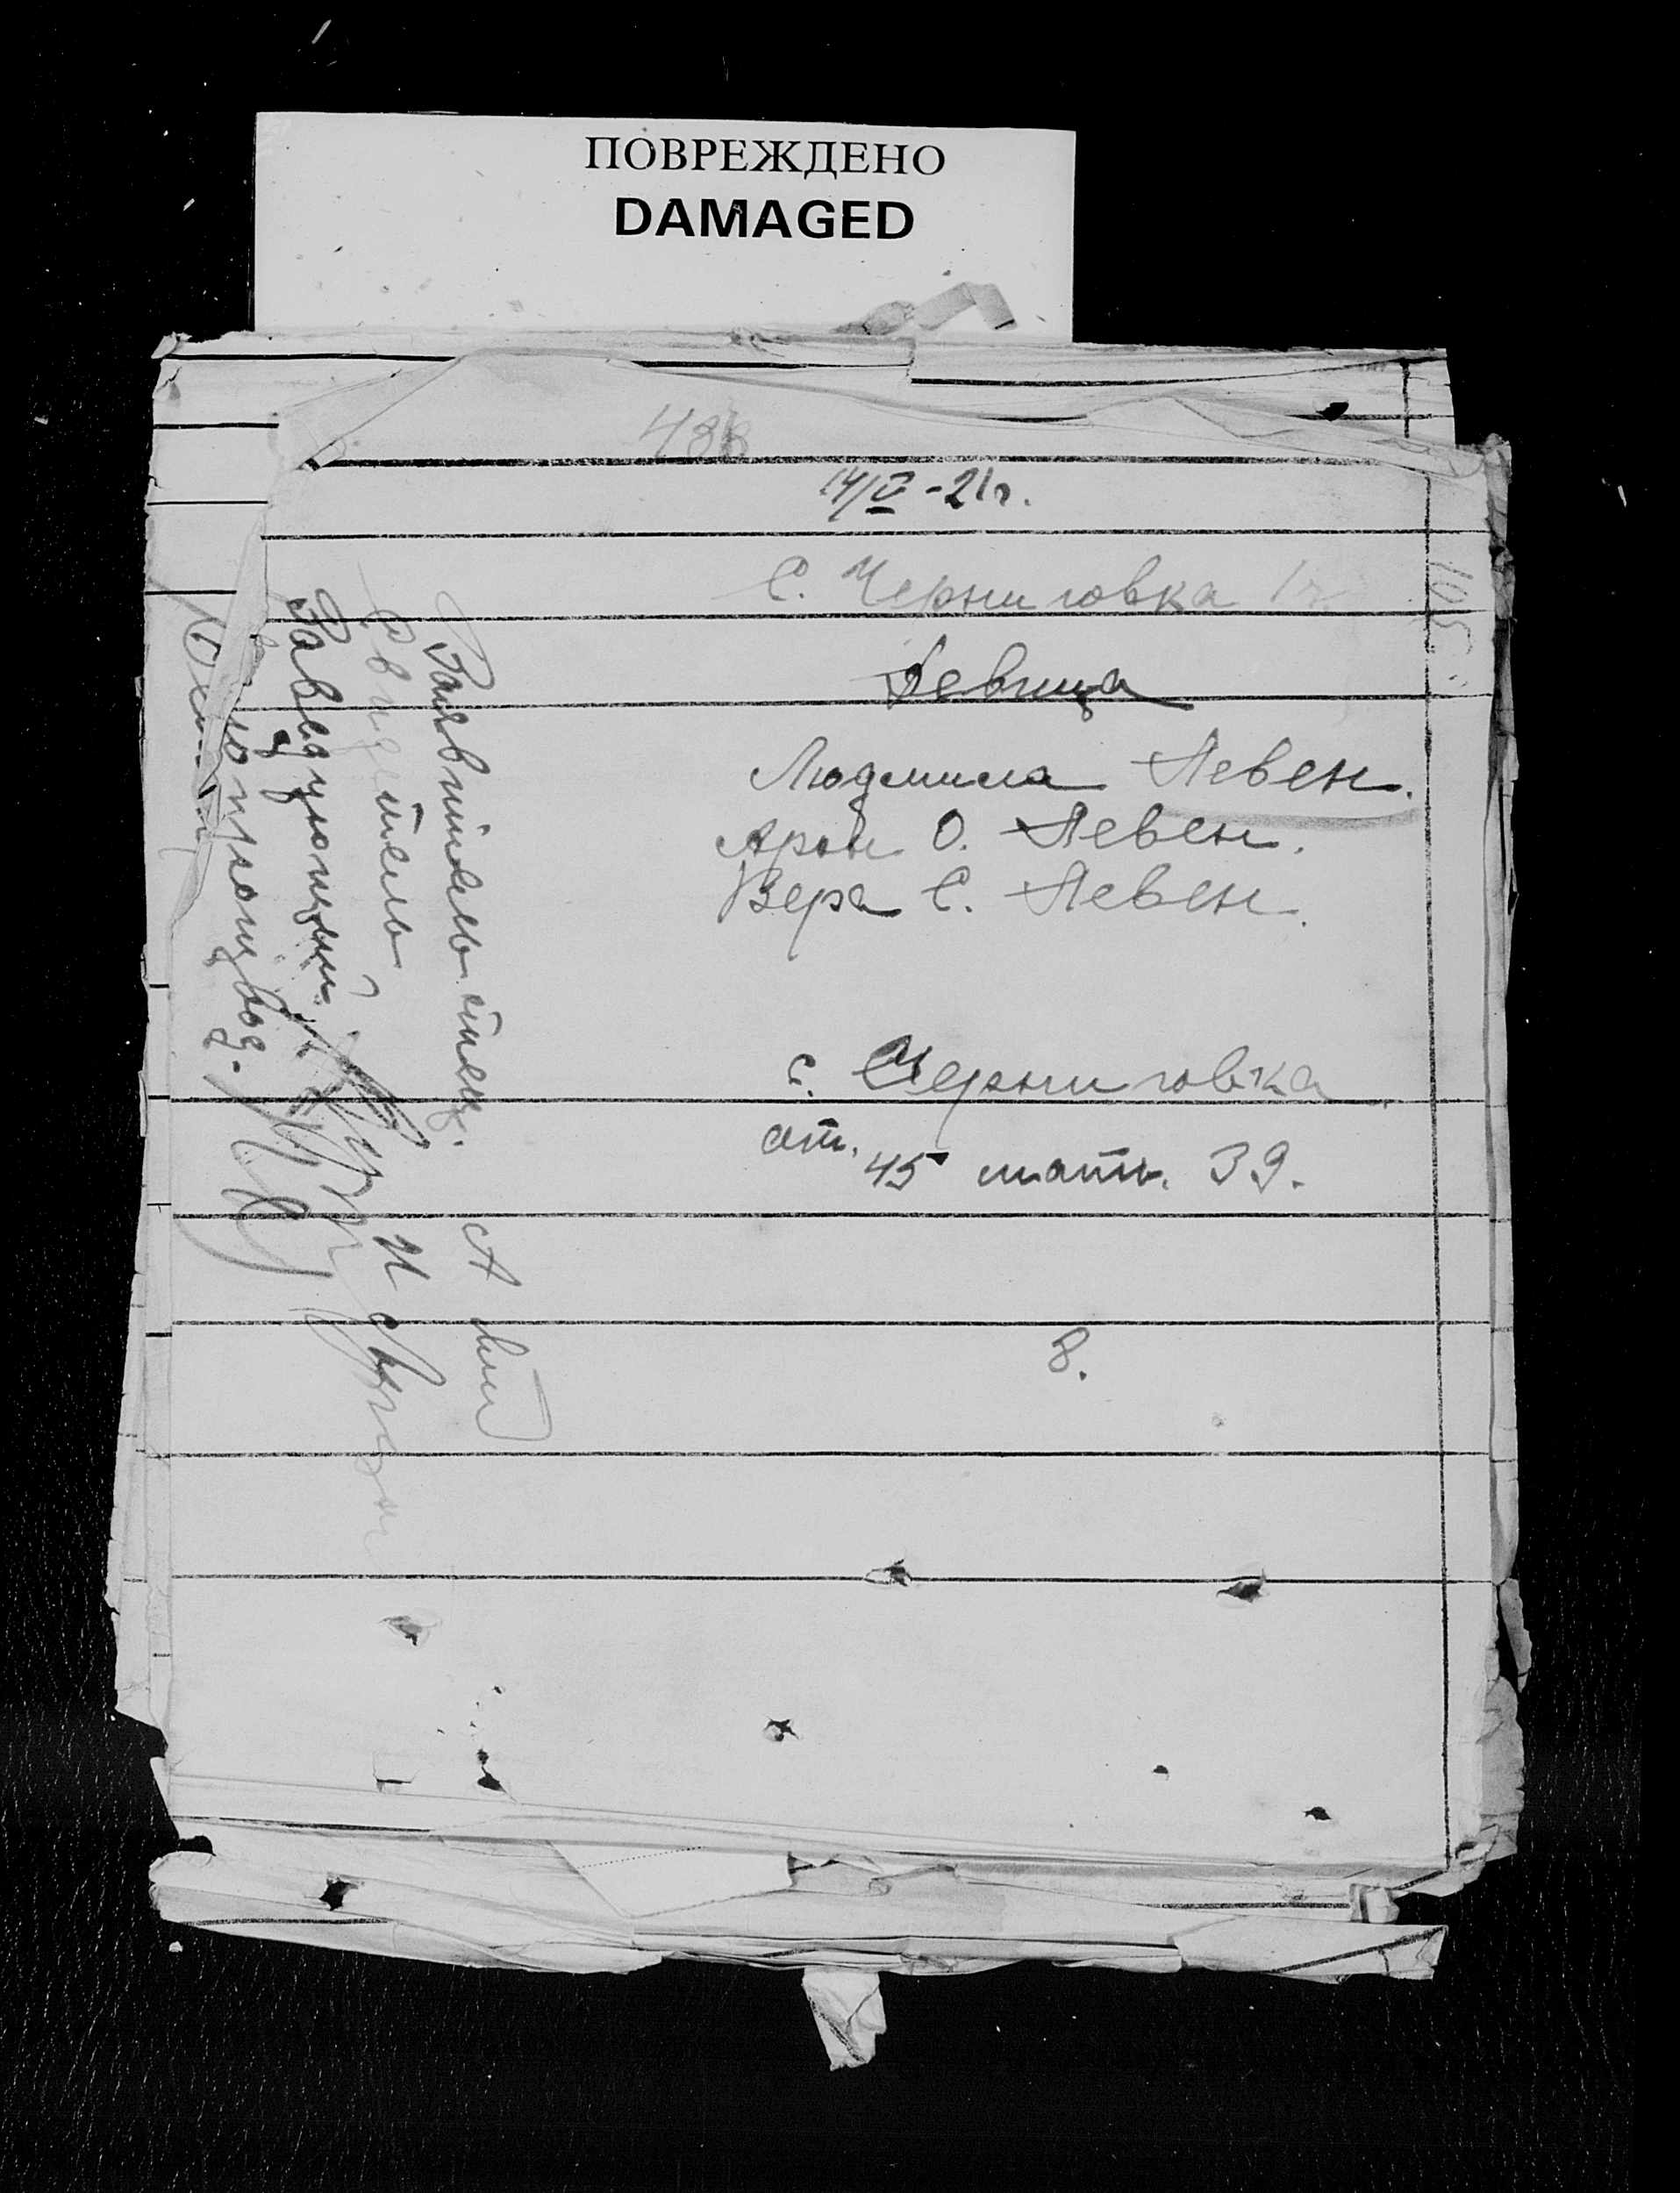 ПОВРЕЖДЕНО
DAMAGED
14/V - 21 г.
С. Черниговка
Девица
Людмила Левен.
Арон О. Левен.
Вера С. Левен.
с. Черниговка
от. 45 мать. 39.
8.
Заявитель отец.
Свидетель
Заведующий
Делопроизвод.